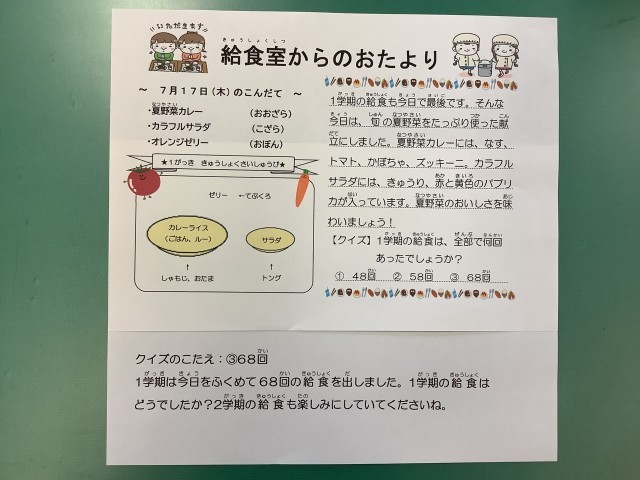 いただきます
給食室からのおたより
～ 7月17日(木)のこんだて ～
・夏野菜カレー (おおざら)
・カラフルサラダ (こざら)
・オレンジゼリー (おぼん)
★1がっき きゅうしょくさいしゅうび★
ゼリー ←てぶくろ
カレーライス
(ごはん、ルー)
サラダ
↑ ↑
しゃもじ、おたま トング
1学期の給食も今日で最後です。そんな
今日は、旬の夏野菜をたっぷり使った献
立にしました。夏野菜カレーには、なす、
トマト、かぼちゃ、ズッキーニ。カラフル
サラダには、きゅうり、赤と黄色のパプリ
カが入っています。夏野菜のおいしさを味
わいましょう!
【クイズ】1学期の給食は、全部で何回
あったでしょうか?
① 48回 ② 58回 ③ 68回
クイズのこたえ:③68回
1学期は今日をふくめて68回の給食を出しました。1学期の給食は
どうでしたか?2学期の給食も楽しみにしていてくださいね。